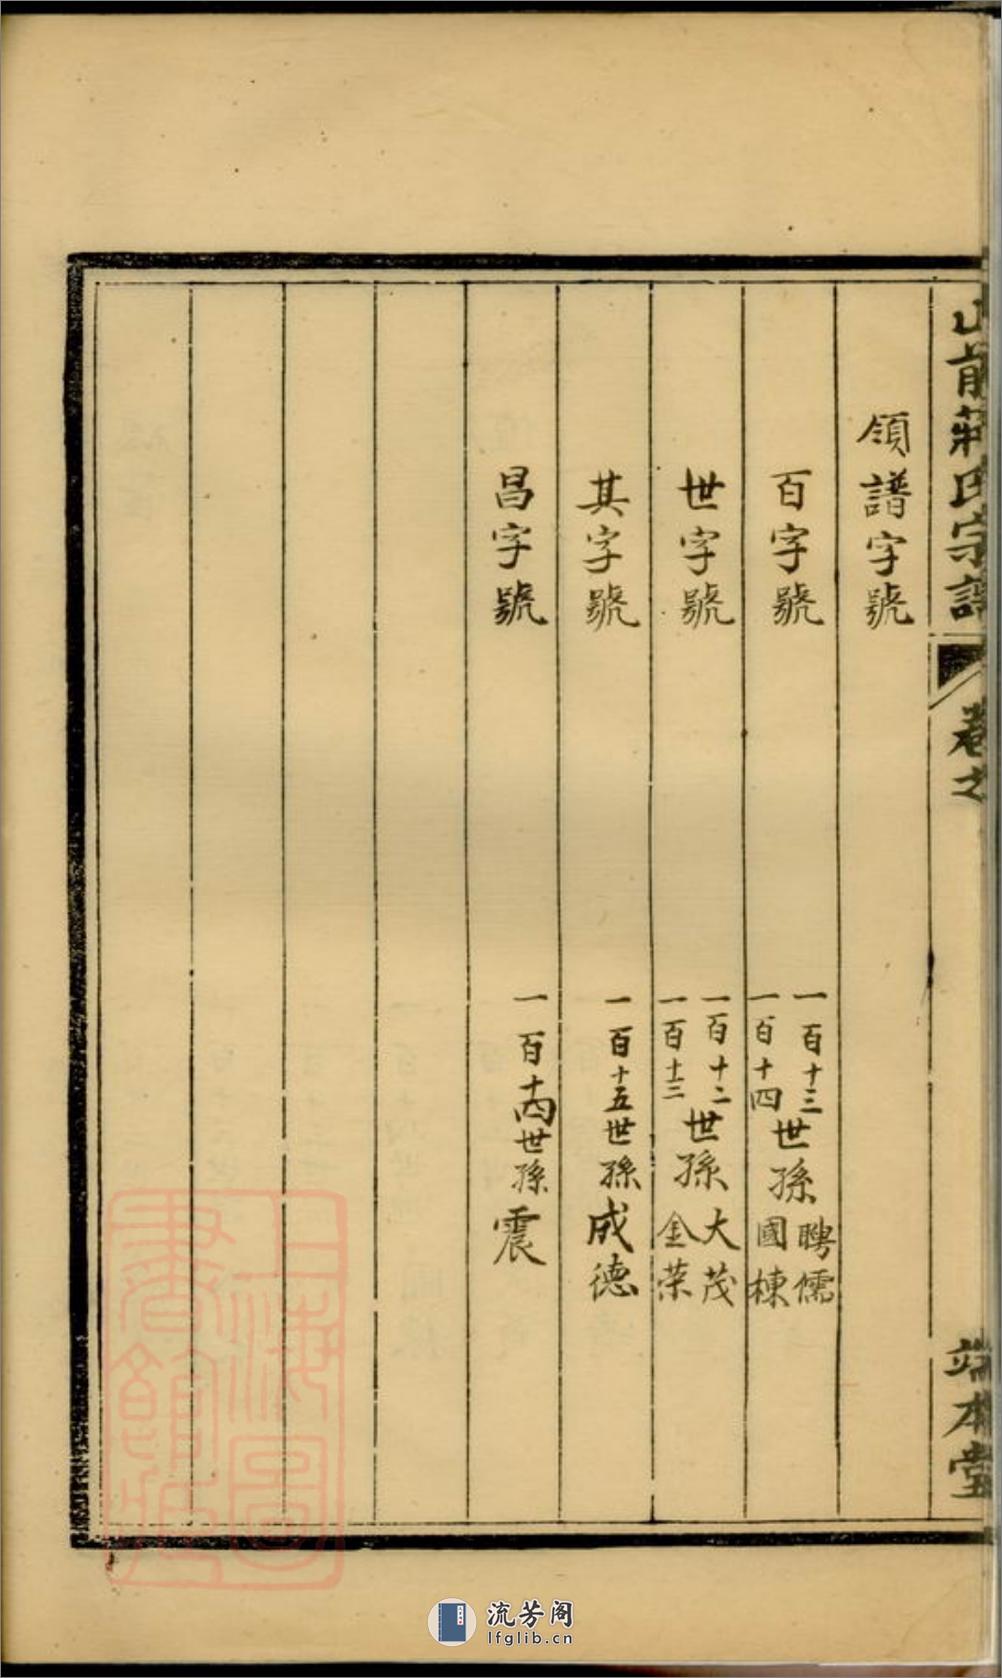 山前莊氏宗譜 卷之 端本堂
領譜字號
百字號 一百十三 一百十四 世孫 聘儒 國棟
世字號 一百十二 一百十三 世孫 大茂 金荣
其字號 一百十五世孫成德
昌字號 一百十四世孫震
上海圖書館藏
流芳阁
lfglib.cn